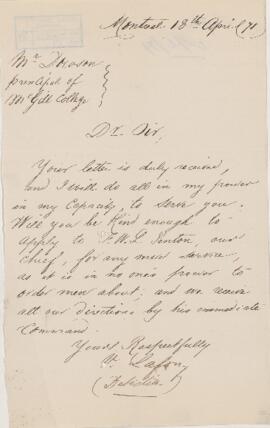 Montreal 18th April /71
Mr Dawson
principal of
McGill College
Dr. Sir,
Your letter is duly receive,
and I will do all in my power
in my Capacity, to serve you.
Will you be Kind enough to
apply to F. W. L. Penton, our
chief, for any men service,
as it is in no one's power to
order men about; and we receive
all our directions by his immediate
Command.
Yours Respectfully
Lafon
(Detective)